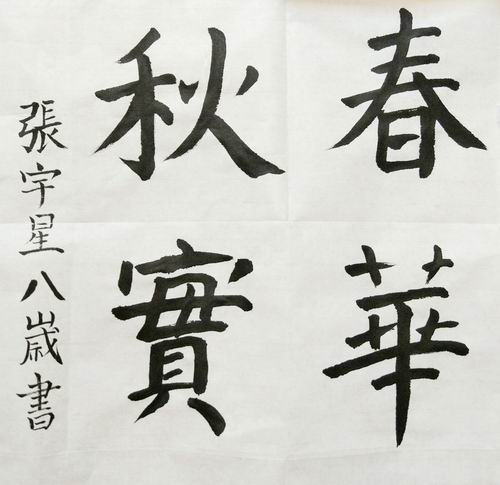 春華
秋實
張宇星八歲書